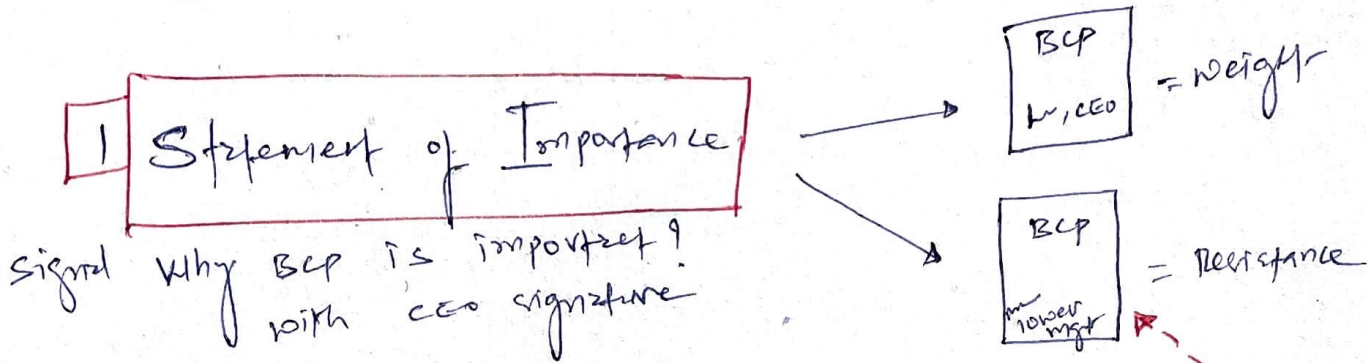 1 Statement of Importance
Signal Why BCP is important?
with CEO signature
BCP
~, CEO
= Weight
BCP
~ lower
mgt
= Resistance